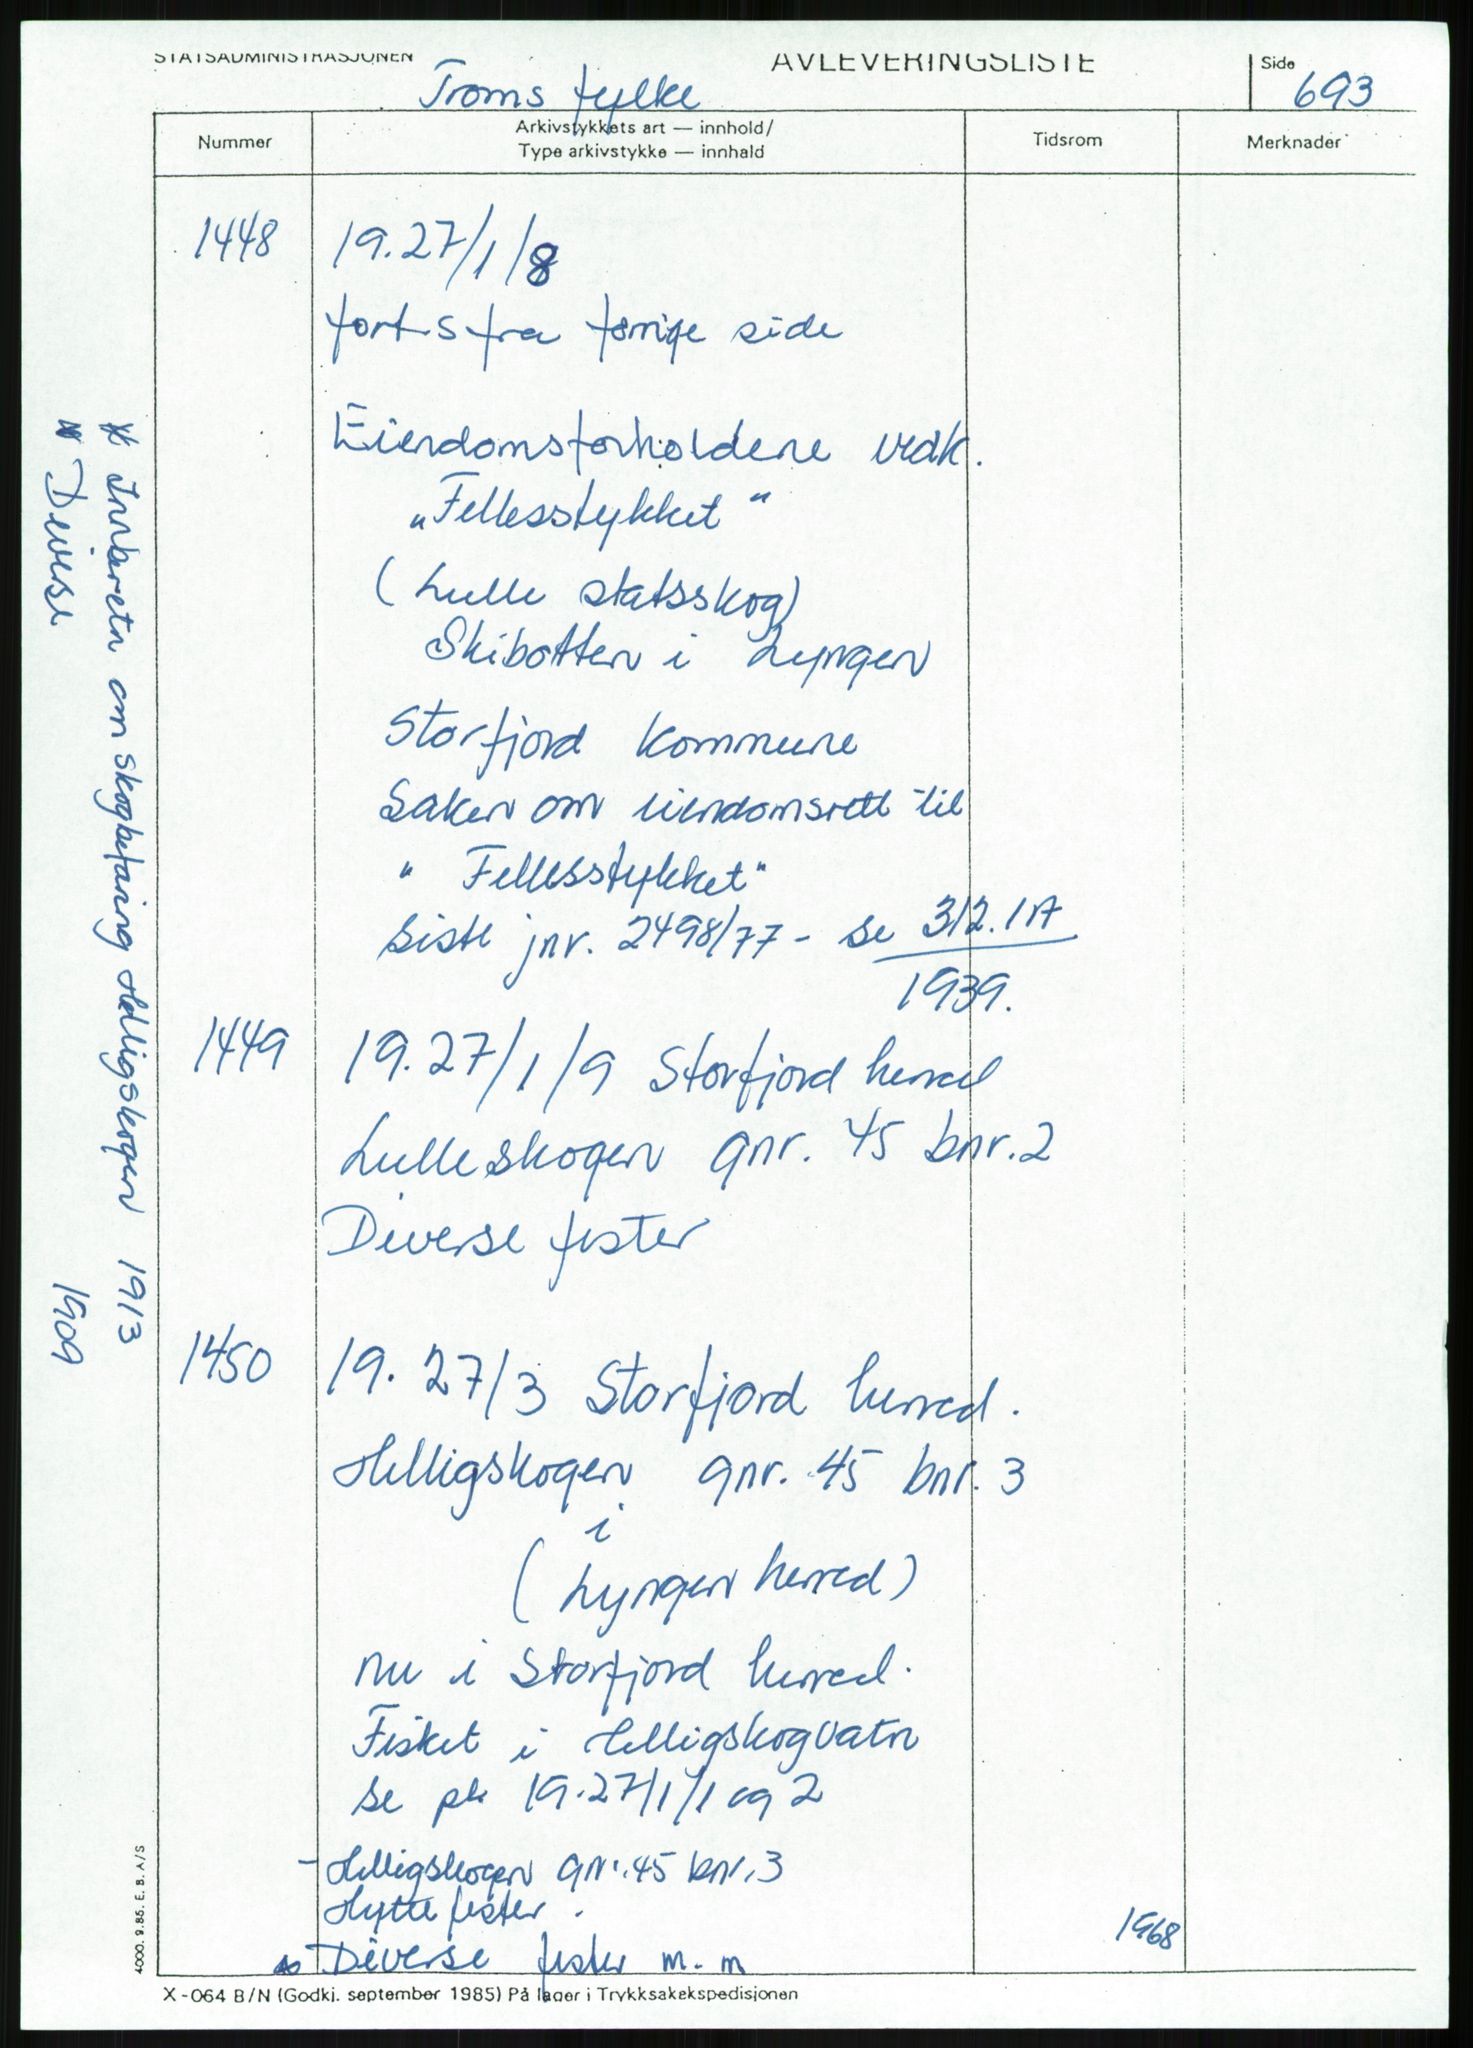 STATSADMINISTRASJONEN
AVLEVERINGSLISTE
Side
693
Troms fylke
Nummer
Arkivstykkets art — innhold/
Type arkivstykke — innhald
Tidsrom
Merknader
1448
19.27/1/8
forts fra forrige side
Eiendomsforholdene vedk.
„Fellesstykket"
(Lulle statsskog)
Skibotten i Lyngen
Storfjord kommune
Saken om eiendomsrett til
" Fellesstykket"
Siste jnr. 2498/77 - se 312.1A
1939.
1449
19.27/1/9 Storfjord herred
Lulleskogen gnr. 45 bnr. 2
Diverse fester
1450
19.27/3 Storfjord herred.
Helligskogen gnr. 45 bnr. 3
i
(Lyngen herred)
nu i Storfjord herred.
Fisket i Helligskogvatn
se pk 19.27/1/1 og 2
- Helligskogen gnr. 45 bnr. 3
Hytte fester.
Diverse fester m. m
1968
* Innberetn om skogbefaring Helligskogen 1913
* Diverse 1909
4000. 9.85. E. B. A/S
X-064 B/N (Godkj. september 1985) På lager i Trykksakekspedisjonen